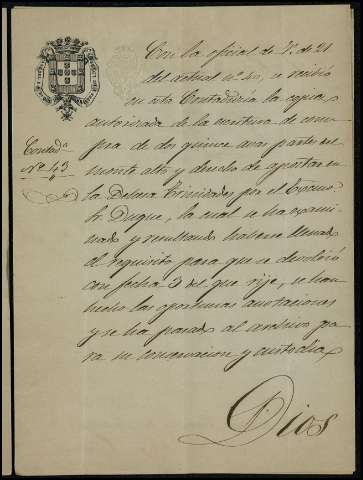 Con la oficial de V. de 21
del actual nº 40, se recibió
en esta Contaduría la copia
autorizada de la escritura de com-
pra de dos quince avas partes del
monte alto y derecho de apostar en
Contadª
Nº 43
la Dehesa Trinidades por el Excmo
Sr. Duque, la cual se ha exami-
nado y resultando haberse llenado
el requisito para que se devolvió
con fecha 3 del que rije, se han
hecho las oportunas anotaciones
y se ha pasado al archivo pa-
ra su conservacion y custodia.
Dios